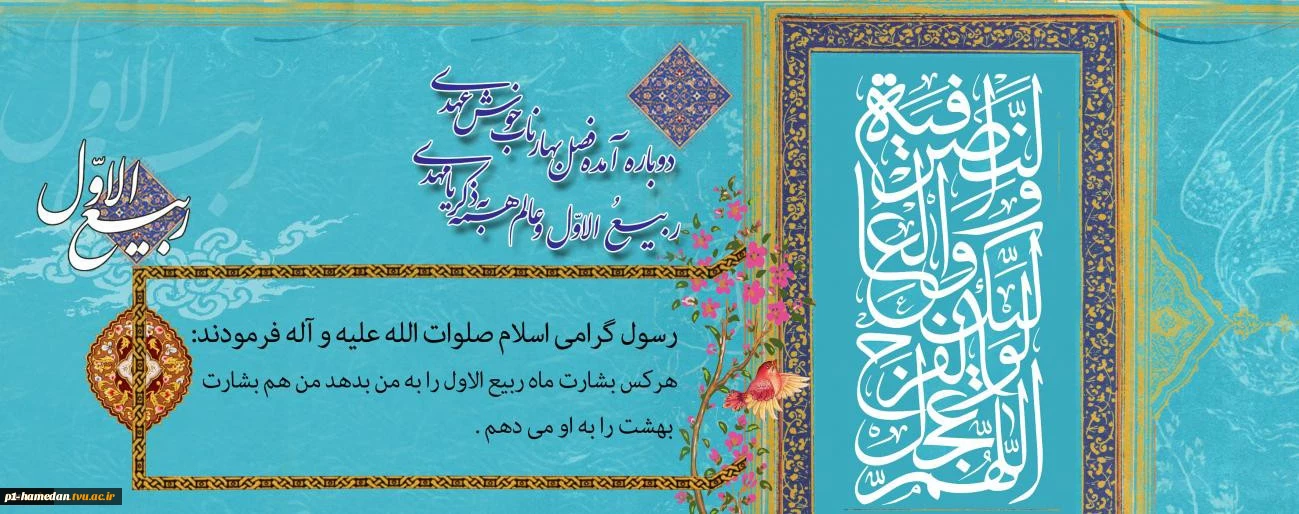 اللّهمّ عجّل لولیّک الفرج والعافیة والنّصر
دوباره آمده فصل بهار ناب خوش عهدی
ربیعُ الاوّل و عالم همه به ذکر یا مهدی
ربیع الاوّل
رسول گرامی اسلام صلوات الله علیه و آله فرمودند:
هرکس بشارت ماه ربیع الاول را به من بدهد من هم بشارت
بهشت را به او می دهم .
ربیع الاوّل
p1-hamedan.tvu.ac.ir